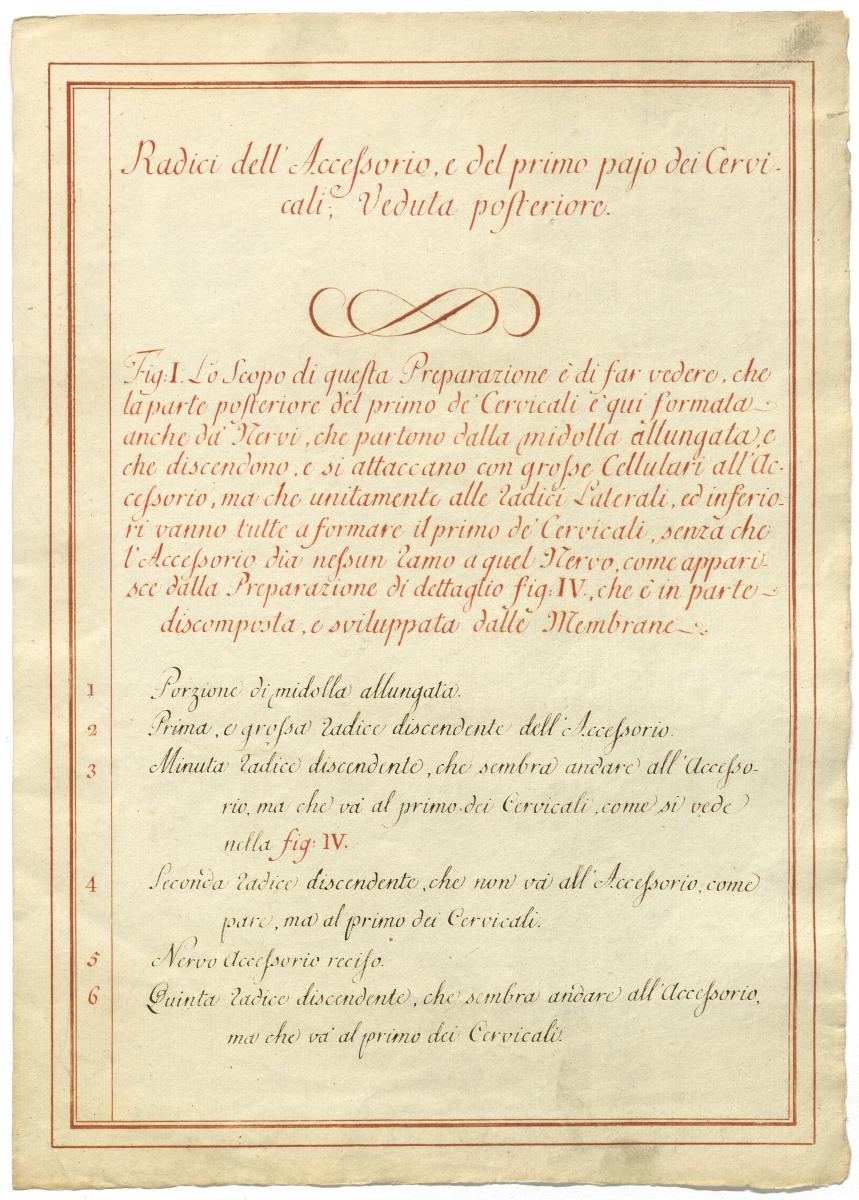 Radici dell'Accessorio, e del primo pajo dei Cervi-
cali; Veduta posteriore.
Fig: I. Lo Scopo di questa Preparazione è di far vedere, che
la parte posteriore del primo de' Cervicali è qui formata
anche da' Nervi, che partono dalla midolla allungata, e
che discendono, e si attaccano con grosse Cellulari all'Ac-
cessorio, ma che unitamente alle radici Laterali, ed inferio-
ri vanno tutte a formare il primo de' Cervicali, senza che
l'Accessorio dia nessun ramo a quel Nervo, come appari-
sce dalla Preparazione di dettaglio fig: IV., che è in parte
discomposta, e sviluppata dalle Membrane.
1 Porzione di midolla allungata.
2 Prima, e grossa radice discendente dell'Accessorio.
3 Minuta radice discendente, che sembra andare all'Accesso-
rio, ma che va al primo dei Cervicali, come si vede
nella fig: IV.
4 Seconda radice discendente, che non va all'Accessorio, come
pare, ma al primo dei Cervicali.
5 Nervo Accessorio reciso.
6 Quinta radice discendente, che sembra andare all'Accessorio,
ma che va al primo dei Cervicali.